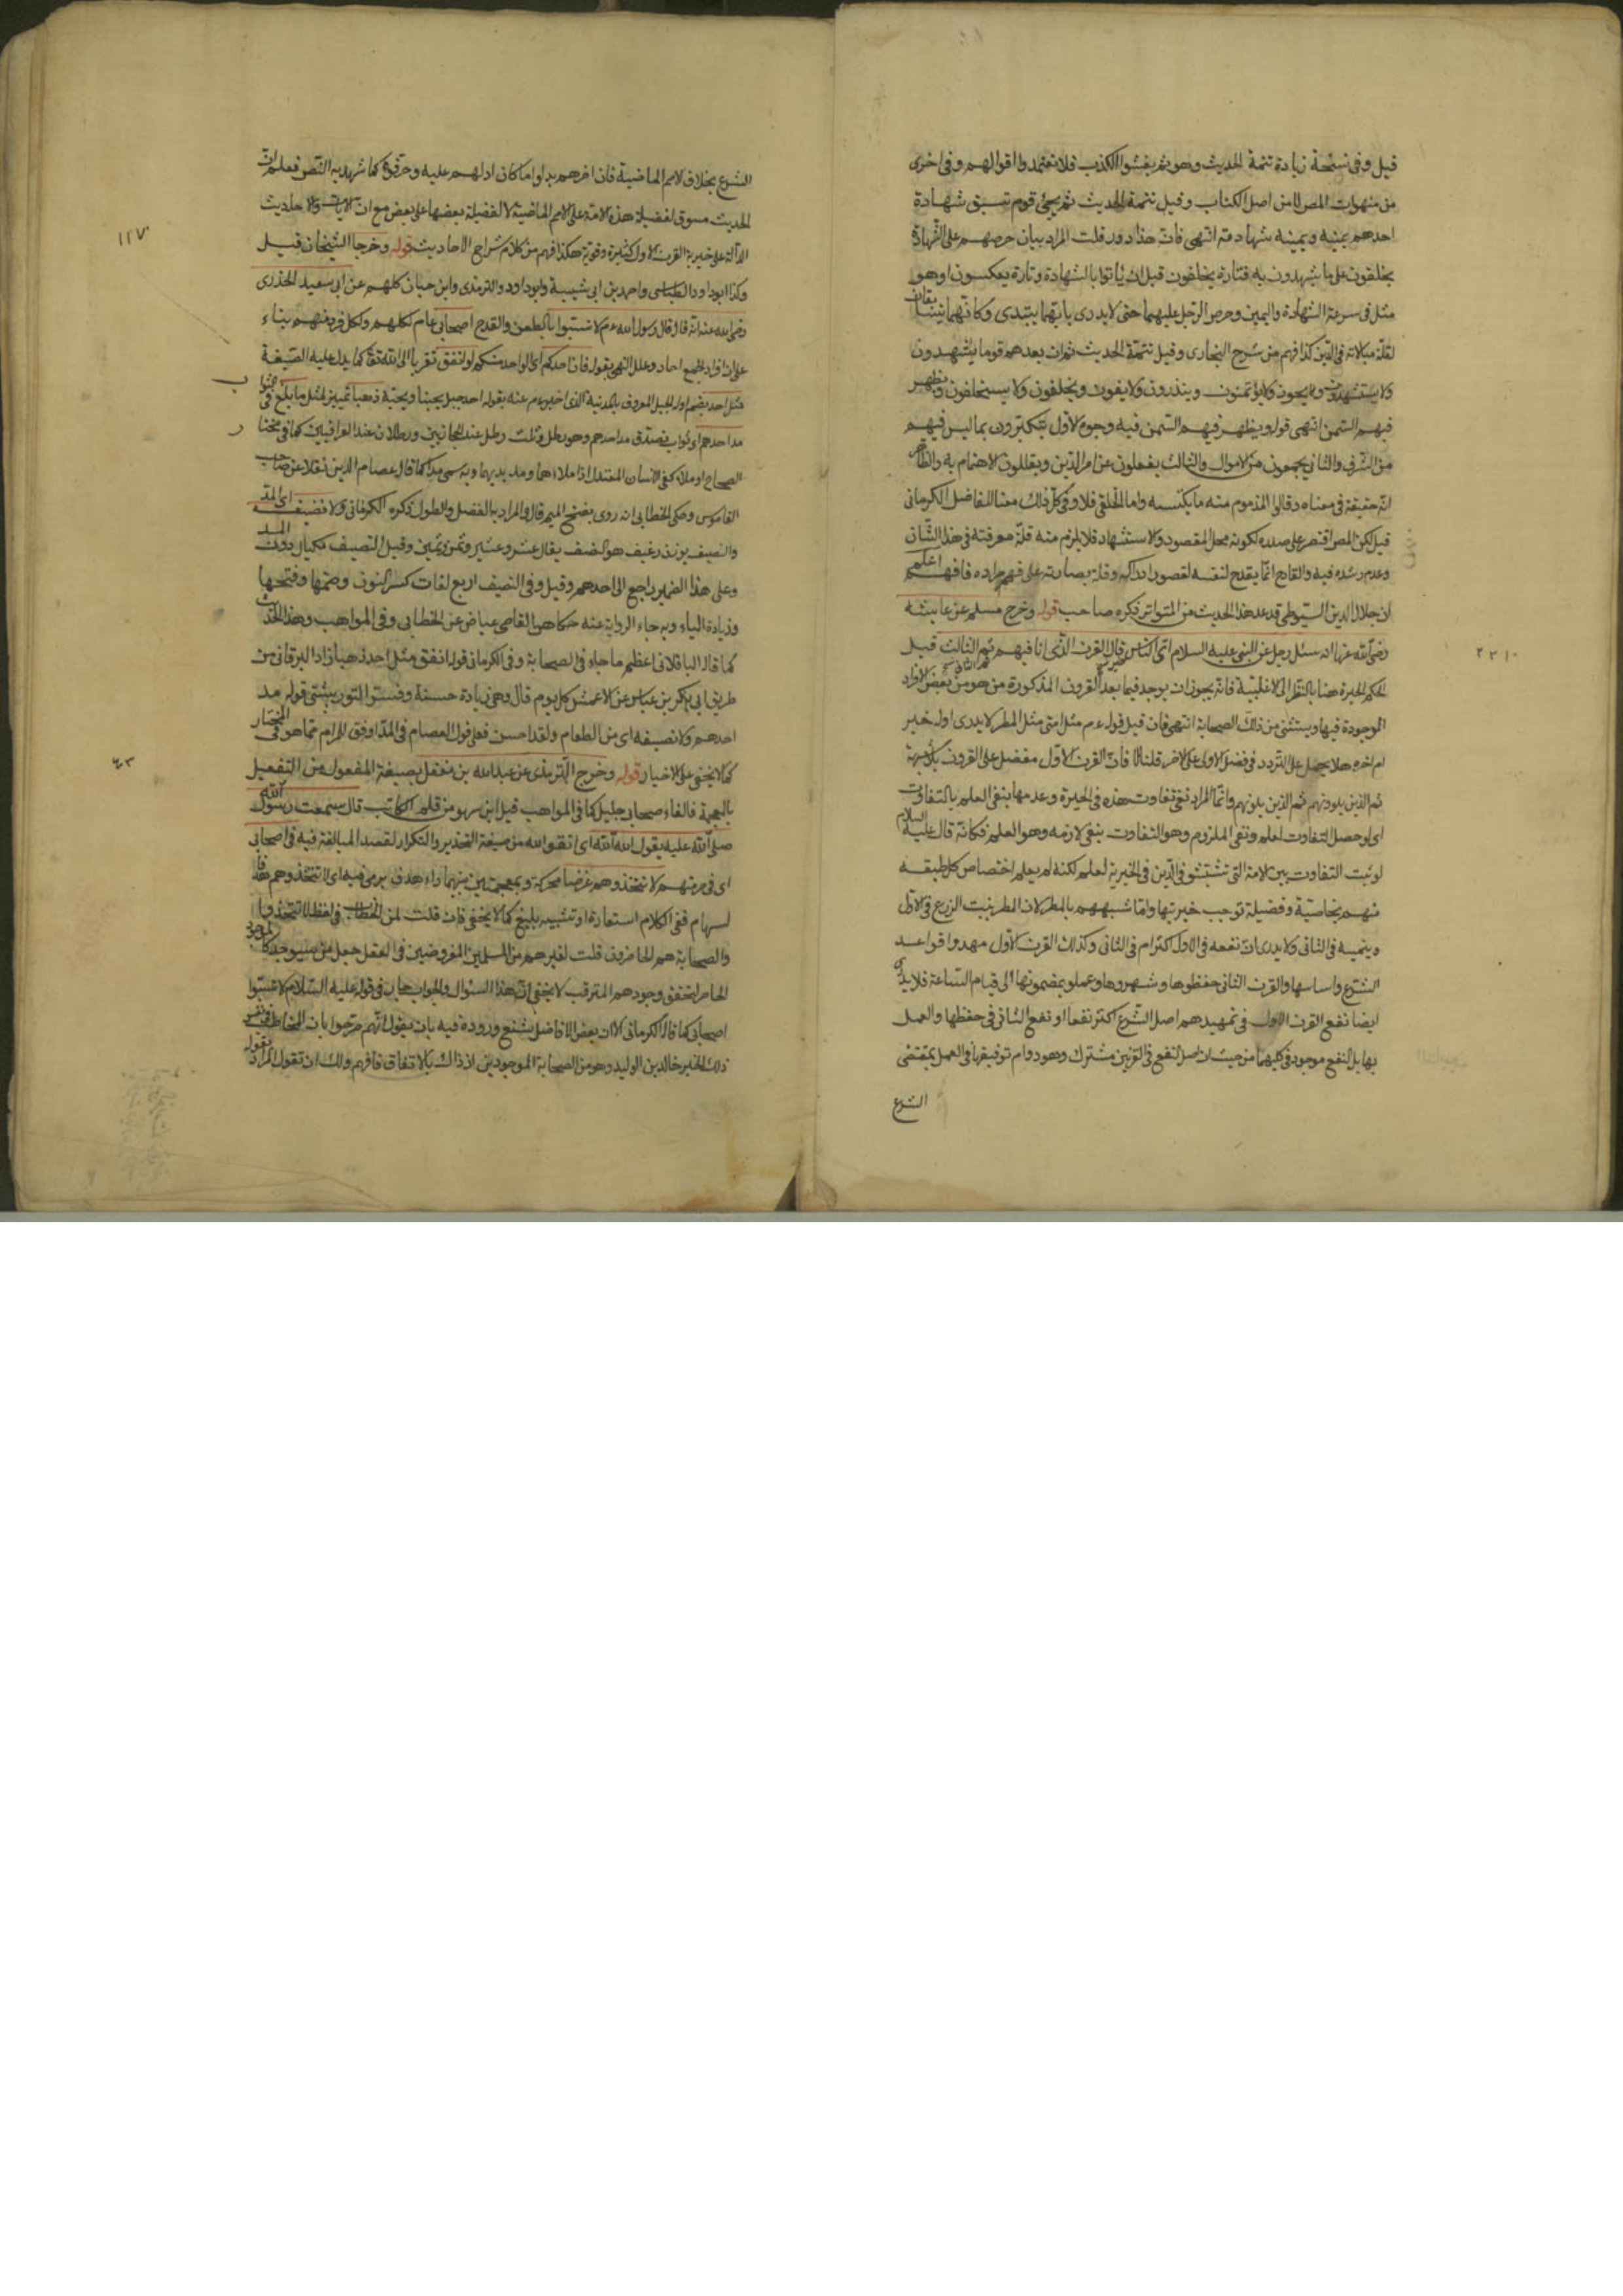 قيل وفى نسخة زيادة تتمة الحديث وهو ثم يفشو الكذب فلا تعتمدوا اقوالهم وفى اخرى
من منهوات المص لا من اصل الكتاب وقيل تتمة الحديث ثم يجئ قوم تسبق شهادة
احدهم يمينه ويمينه شهادته انتهى فان هذا دور قلت المراد بيان حرصهم على الشهادة
يحلفون على ما يشهدون به فتارة يحلفون قبل ان يأتوا بالشهادة وتارة يعكسون او هو
مثل فى سرعة الشهادة واليمين وحرص الرجل عليهما حتى لا يدرى بايهما يبتدى وكانهما يتسابقان
لقلة مبالاته فى الدين كذا فهم من شرح البخارى وقيل تتمة الحديث ثم ان بعدهم قوما يشهدون
ولا يستشهدون ولا يؤتمنون وينذرون ولا يفون ويحلفون ولا يستحلفون ويظهر
فيهم السمن انتهى قوله ويظهر فيهم السمن فيه وجوه الاول يتكثرون بما ليس فيهم
من الشرف والثانى يجمعون من الاموال والثالث يغفلون عن امر الدين ويقللون الاهتمام به والظاهر
انه حقيقة فى معناه وقالوا المذموم منه ما يكتسبه واما الخلقى فلا وفى كل ذلك معنا للفاضل الكرمانى
قيل لكن المص اقتصر على صدره لكونه محل المقصود والاستشهاد فلا يلزم منه قلة معرفته فى هذا الشان
وعدم رشده فيه والقادح انما يقدح لنفسه لقصور ادراكه وقلة بصارته على فهم مراده فافهم اعلم
ان جلال الدين السيوطى قد عد هذا الحديث من المتواتر ذكره صاحب قوله وخرج مسلم عن عايشة
رضى الله عنها انه سئل رجل عن النبى عليه السلام اى الناس خير قال القرن الذى انا فيهم ثم الثانى ثم الثالث قيل
الحكم الخيرة هنا بالنظر الى الاغلبية فانه يجوز ان يوجد فيما بعد القرون المذكورة من هو من بعض الافراد
الموجودة فيها ويستثنى من ذلك الصحابة انتهى فان قيل قوله عم مثل امتى مثل المطر لا يدرى اوله خير
ام اخره هلا يحمل على التردد فى فضل الاول على الاخر قلنا لا فان القرن الاول مفضل على القرون بلا شبهة
ثم الذين يلونهم ثم الذين يلونهم وانما المراد نفى تفاوت هذه فى الخيرة وعدمها بنفى العلم بالتفاوت
اى لو حصل التفاوت لعلم ونفى الملزوم وهو التفاوت بنفى لازمه وهو العلم فكانه قال عليه السلام
لو ثبت التفاوت بين الامة التى فى الدين فى الخيرية لعلم لكنه لم يعلم اختصاص كل طبقه
منهم بخاصية وفضيلة توجب خيريتها وانما شبههم بالمطر لان المطر ينبت الزرع فى الاول
وينميه فى الثانى ولا يدرى ان نفعه فى الاول اكثر ام فى الثانى وكذلك القرن الاول مهدوا قواعد
الشرع واساسها والقرن الثانى حفظوها وشهروها وعملوا بمضمونها الى قيام الساعة فلا يدرى
ايضا نفع القرن الاول فى تمهيدهم اصل الشرع اكثر نفعا او نفع الثانى فى حفظها والعمل
بها بل النفع موجود فى كليهما من حيث ان اصل النفع فى القرنين مشترك وهو دوام توفيقها فى العمل بمقتضى
الشرع
٢٢١٠
١١٧
الشرع بخلاف الامم الماضية فان اخرهم بدلوا ما كان اولهم عليه وحرفوه كما شهد به النص فعلم ان
الحديث مسوق لفضيلة هذه الامة على الامم الماضية لا لفضيلة بعضها على بعض مع ان الايات والاحاديث
الدالة على خيرية القرن الاول كثيرة وقوية هكذا فهم من كلام شراح الاحاديث قوله وخرجا الشيخان قيل
وكذا ابو داود الطيالسى واحمد بن ابى شيبة وابو داود والترمذى وابن حبان كلهم عن ابى سعيد الخدرى
رضى الله عنه انه قال قال رسول الله عم لا تسبوا بالطعن والقدح اصحابى عام لكلهم ولكل فرد منهم بناء
على ان افراد الجمع احاد وعلل النهى بقوله فان احدكم اى الواحد منكم لو انفق تقربا الى الله تعالى كما يدل عليه الصيغة
مثل احد بضم اوله الجبل المعروف بالمدنية الذى اخبر عم عنه بقوله احد جبل يحبنا ونحبه ذهبا تمييز لمثل ما بلغ ثوابا فى
مد احدهم اى ثواب تصدق مد احدهم وهو رطل وثلث رطل عند الحجازيين ورطلان عند العراقيين كما فى مختار
الصحاح او ملا كفى الانسان المعتدل اذا ملاءهما ومد يديهما وبه سمى مدا كما قال عصام الدين نقلا عن صاحب
القاموس وحكى الخطابى انه روى بفتح الميم قال والمراد به الفضل والطول ذكره الكرمانى ولا نصيفه اى المد
والنصيف بوزن رغيف هو النصف يقال عشر وعشير وثمن وثمين وقيل النصيف مكيال دون المد
وعلى هذا الضمير راجع الى احدهم وقيل وفى النصيف اربع لغات كسر النون وضمها وفتحها
وزيادة الياء وبه جاء الرواية عنه حكاها القاضى عياض عن الخطابى وفى المواهب وهذا الحديث
كما قاله الباقلانى اعظم ما جاء فى الصحابة وفى الكرمانى قوله انفق مثل احد ذهبا زاد البرقانى من
طريق ابى بكر بن عياش عن الاعمش كل يوم قال وهى زيادة حسنة وفسر التوربشتى قوله مد
احدهم ولا نصيفه اى من الطعام ولقد احسن فعلى قول العصام فى المد اوفق للمرام مما هو فى المختار
كما لا يخفى على الاخيار قوله وخرج الترمذى عن عبد الله بن مغفل بصيغة المفعول من التفعيل
بالمعجمة فالفاء صحابى جليل كما فى المواهب قيل ابن سهو من قلم الكاتب قال سمعت رسول الله
صلى الله عليه يقول الله الله اى اتقوا الله من صيغة التحذير والتكرار لقصد المبالغة فيه فى اصحابى
اى فى حرمتهم لا تتخذوهم غرضا محركة وبمعجمتين بينهما راء هدف يرمى فيه اى لا تتخذوهم هدفا
لسهام ففى الكلام استعارة او تشبيه بليغ كما لا يخفى فان قلت لمن الخطاب فى لفظ لا تتخذوا
والصحابة هم الحاضرون قلت لغيرهم من المسلمين المفروضين فى العقل جعل من سيوجد كالموجود
الحاضر لتحقق وجودهم المترقب لا يخفى ان هذا السئوال والجواب جار فى قوله عليه السلام لا تسبوا
اصحابى كما قال الكرمانى الا ان بعض الافاضل يشنع وروده فيه بان يقول انهم صرحوا بان المخاطب فى نفس
ذلك الخبر خالد بن الوليد وهو من الصحابة الموجودين اذ ذاك بالاتفاق فافهم ولك ان تقول المراد بقوله